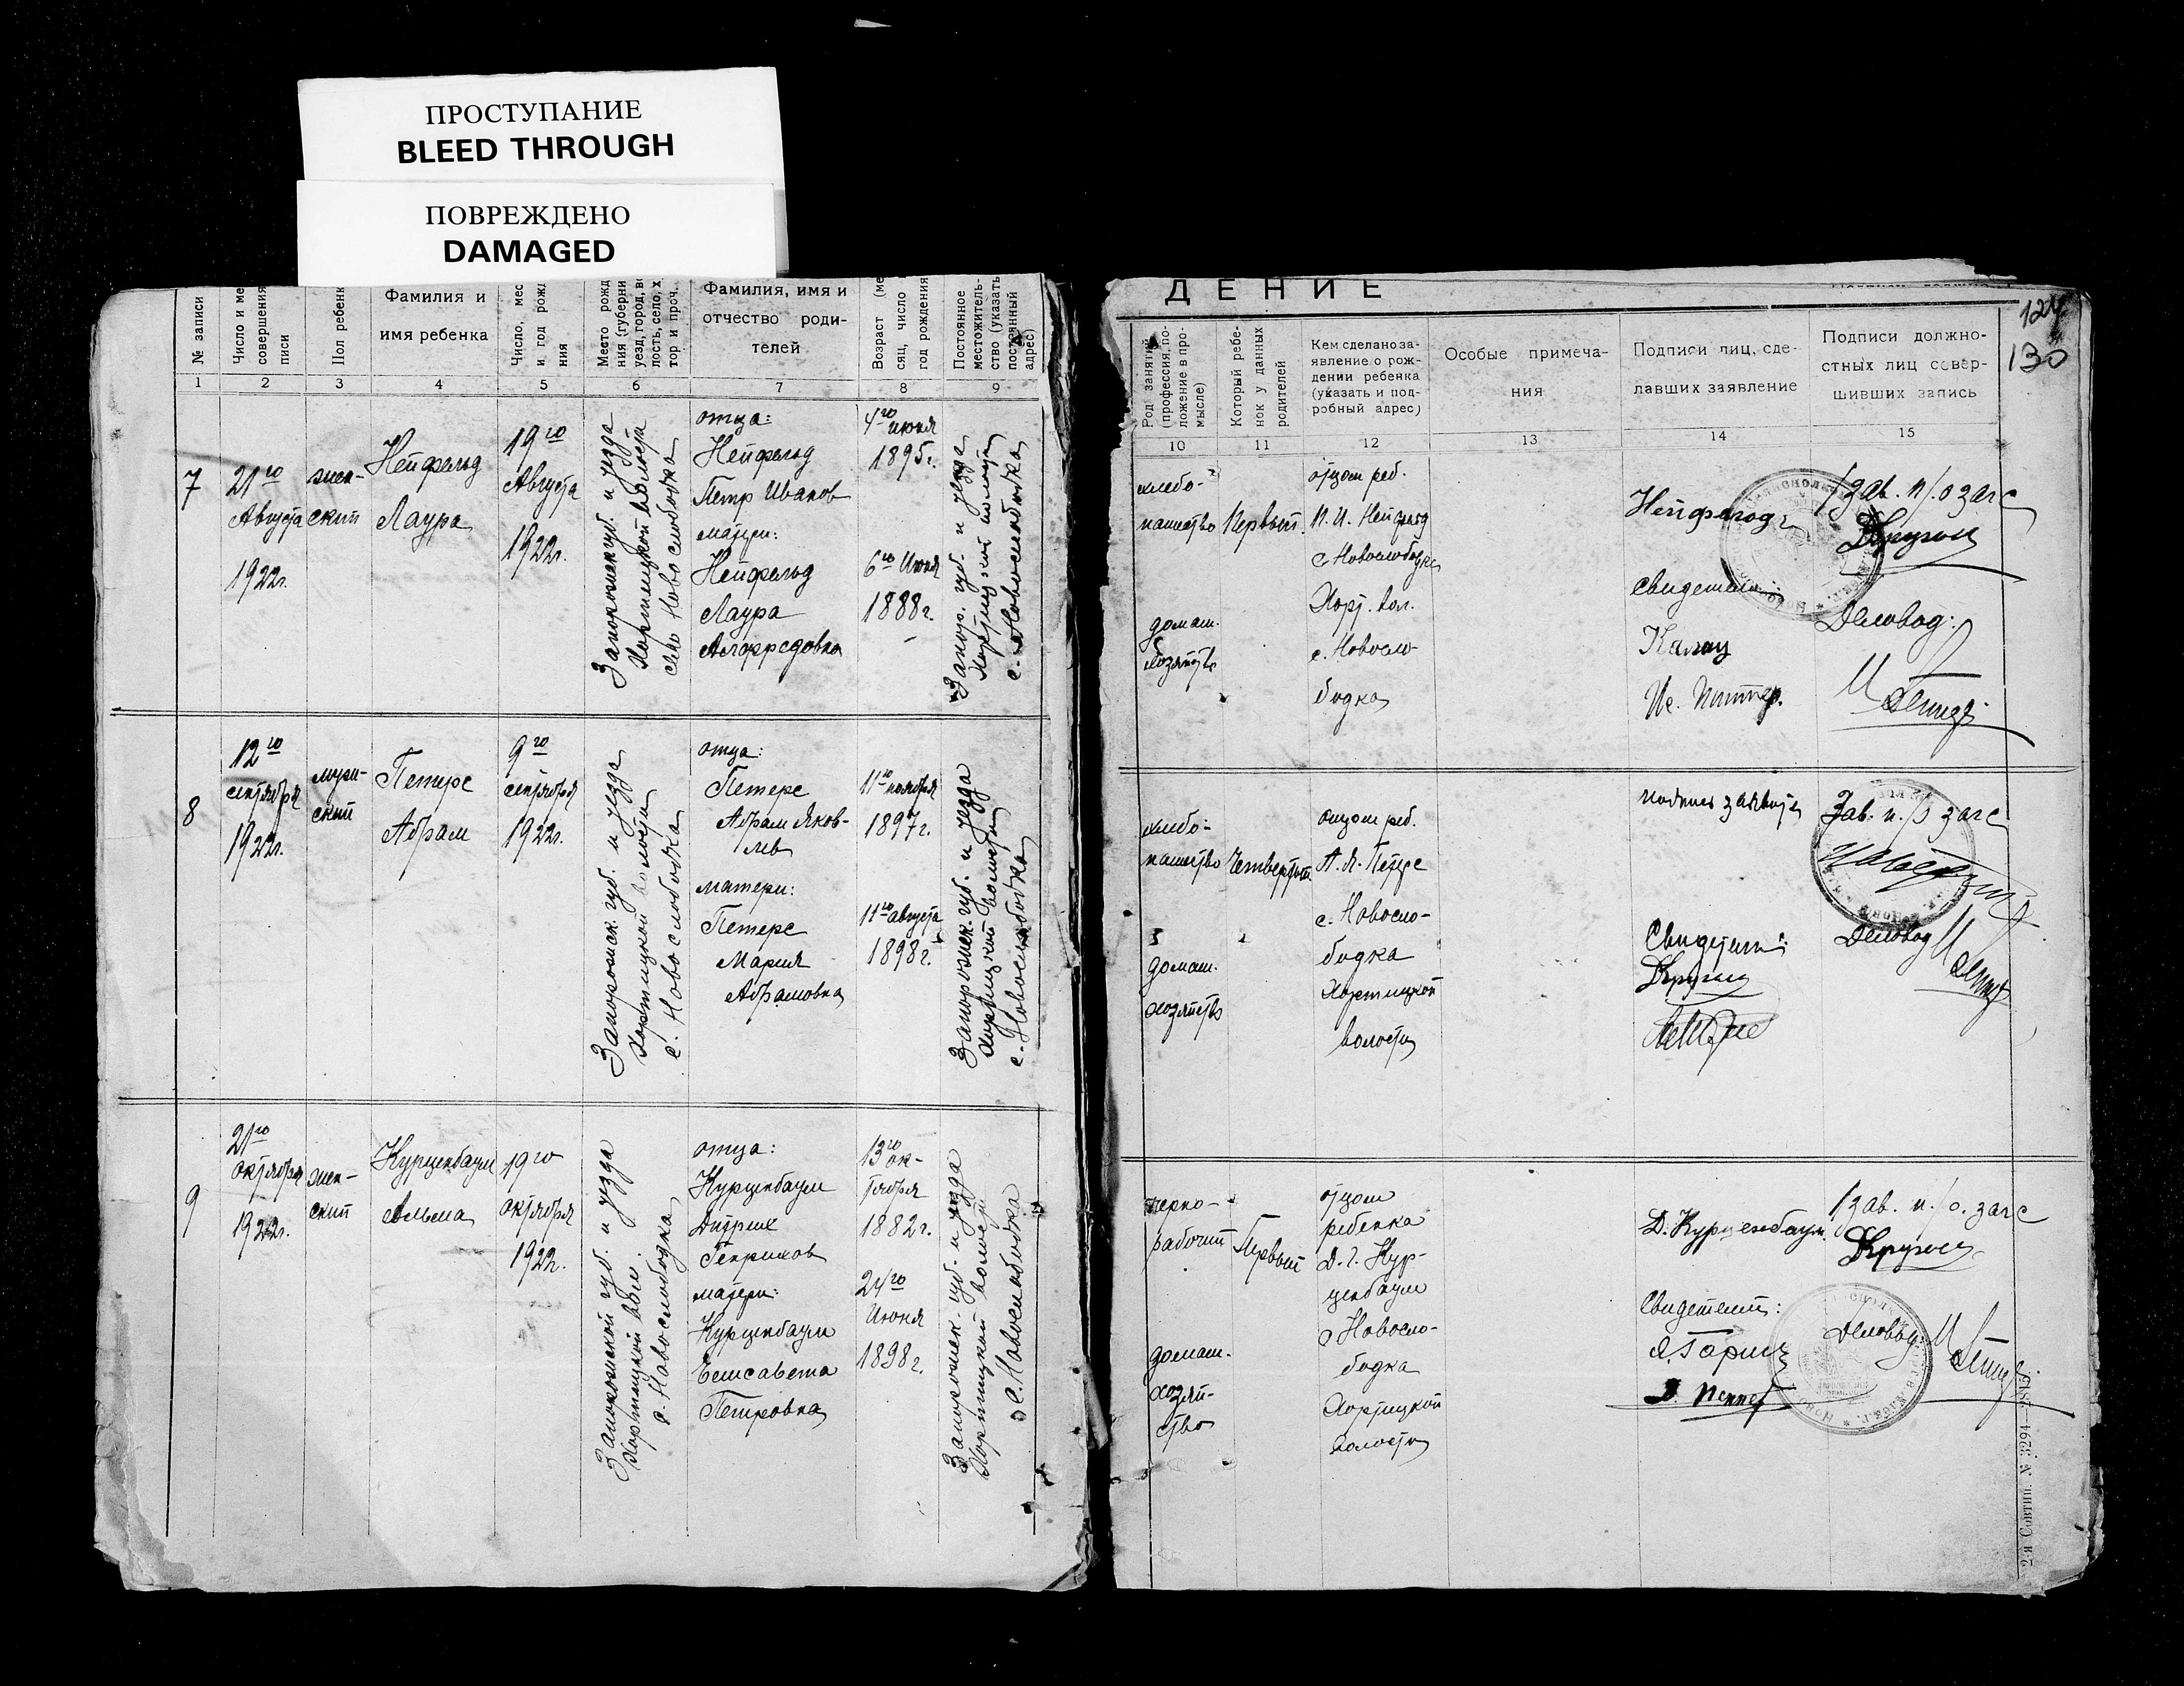 ПРОСТУПАНИЕ
BLEED THROUGH
ПОВРЕЖДЕНО
DAMAGED
№ записи
Число и ме
совершения
писи
Пол ребенк
Фамилия и
имя ребенка
Число, мес
и год рожд
ния
Место рожд
ния (губерни
уезд, город, во
лость, село, х
тор и проч.
Фамилия, имя и
отчество роди-
телей
Возраст (ме
сяц, число
год рождения
Постоянное
местожитель-
ство (указать
постоянный
адрес)
1 2 3 4 5 6 7 8 9
7
21го
Августа
1922г.
жен-
ский
Нейфельд
Лаура
19го
Августа
1922г.
Запорожск. губ. и уезда
Хортицкой волости
село Новослободка
отца:
Нейфельд
Петр Иванов
матери:
Нейфельд
Лаура
Альфредовна
4го июня
1895г.
6го Июня
1888г.
Запор. губ. и уезда
Хортицкой волости
с. Новослободка
8
12го
сентября
1922г.
муж-
ской
Петерс
Абрам
9го
сентября
1922г.
Запорожск. губ. и уезда
Хортицкой волости
с. Новослободка
отца:
Петерс
Абрам Яков-
лев
матери:
Петерс
Мария
Абрамовна
11го ноября
1897г.
11го августа
1898г.
Запорожск. губ. и уезда
Хортицкой волости
с. Новослободка
9
21го
октября
1922г.
жен-
ский
Курценбаум
Альма
19го
октября
1922г.
Запорожской губ. и уезда
Хортицкой вол.
с. Новослободка
отца:
Курценбаум
Дидрих
Генрихов
матери:
Курценбаум
Елисавета
Петровна
13го ок-
тября
1882г.
24го
Июня
1898г.
Запорожск. губ. и уезда
Хортицкой волости
с. Новослободка
ДЕНИЕ
124
130
Род занятий
(профессия, по-
ложение в про-
мысле)
Который ребе-
нок у данных
родителей
Кем сделано за-
явление о рож-
дении ребенка
(указать и под-
робный адрес)
Особые примеча-
ния
Подписи лиц, сде-
лавших заявление
Подписи должно-
стных лиц совер-
шивших запись
10 11 12 13 14 15
хлебо-
пашество
домаш.
хозяйство
Первый
отцом реб.
П. И. Нейфельд
с. Новослободка
Хорт. вол.
с. Новосло-
бодка
Нейфельд
свидетели:
зав. п/о загс
Деловод:
хлебо-
пашество
домаш.
хозяйство
Четвертый
отцом реб.
А. Я. Петерс
с. Новосло-
бодка
Хортицкой
волости
подпись заявит.
Свидетели:
Зав. п./о загс
Деловод
черно-
рабочий
домаш.
хозяй-
ство
Первый
отцом
ребенка
Д. Г. Кур-
ценбаум
с. Новосло-
бодка
Хортицкой
волости
Д. Курценбаум.
Свидетели:
зав. п./о. загс
Деловод:
2-я Совтип. № 3294